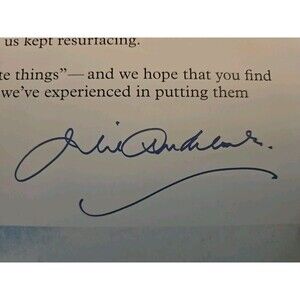 us kept resurfacing.
te things”—and we hope that you find
we’ve experienced in putting them